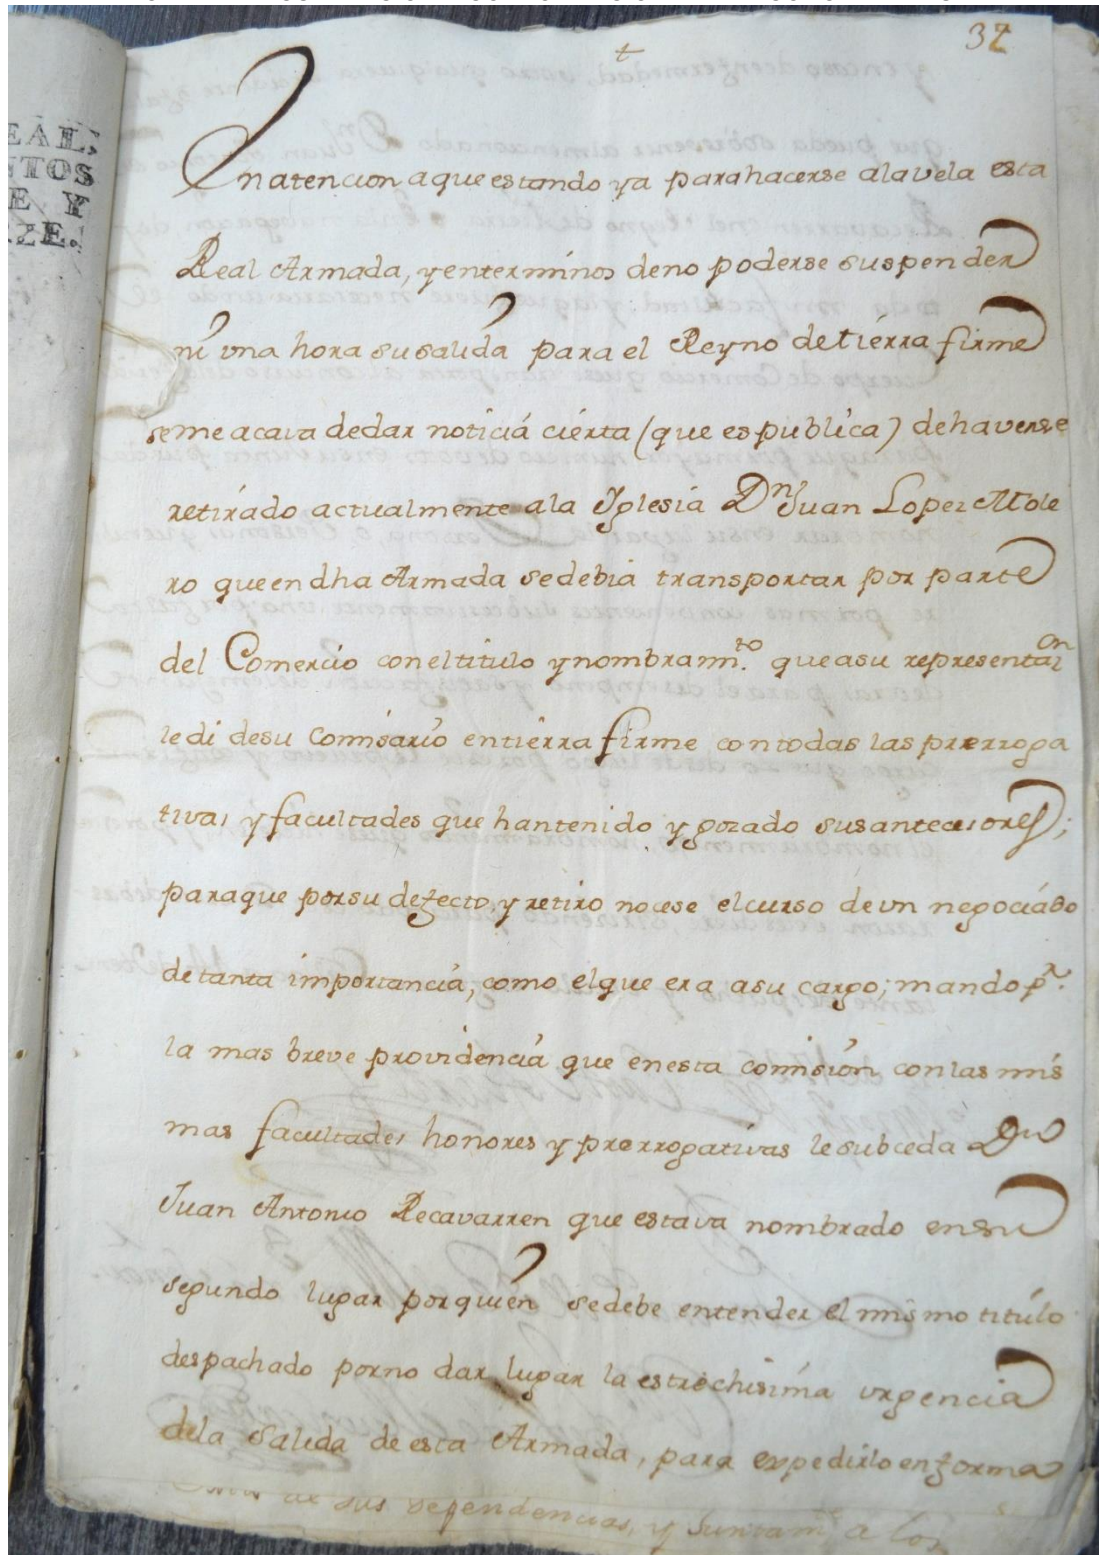 EAL,
NTOS
E Y
RZE.
37
t
En atencion aque estando ya para hacerse alavela esta
Real Armada, y enterminos deno poderse suspender
ni vna hora susalida para el Reyno detierra firme
seme acava dedar noticia cierta (que es publica) dehaverse
retirado actualmente ala Yglesia Dn Juan Lopez Mole
ro que en dha Armada sedebia transportar por parte
del Comercio con eltitulo y nombramto. que asu representaon
le di desu Comisario entierra firme contodas las prerroga
tivas y facultades que hantenido y gozado susantecesores;
paraque porsu defecto, y retiro nocese elcurso devn negociado
detanta importancia, como elque era asu cargo; mando pr.
la mas breve providencia que enesta comision conlas mis
mas facultades honores y prerrogativas lesubceda Dn
Juan Antonio Recavarren que estava nombrado ensu
segundo lugar porquien sedebe entender el mismo titulo
despachado porno dar lugar la estrechisima vrgencia
dela Salida de esta Armada, para expedirlo enforma
de sus dependencias, y Juntamte a los